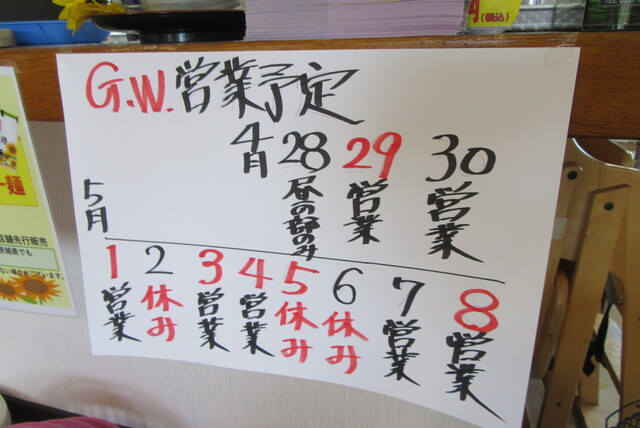 G.W.営業予定
4月 28 29 30
昼の部のみ 営業 営業
5月
1 2 3 4 5 6 7 8
営業 休み 営業 営業 休み 休み 営業 営業
麺
店舗先行販売
茨城県でも